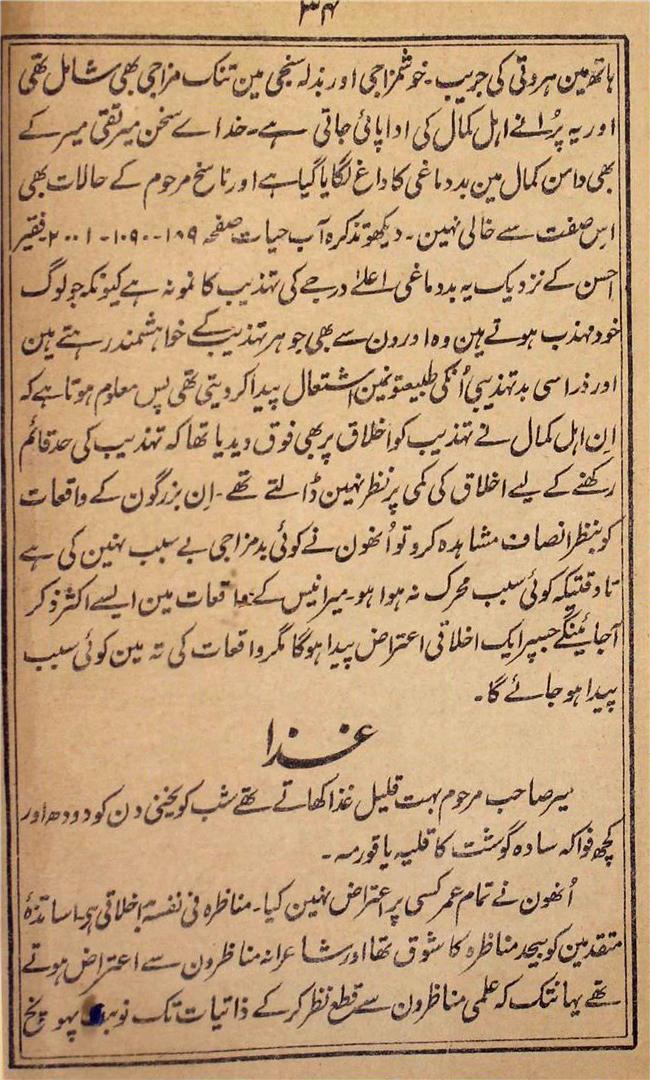 ۳۴
ہاتھ مین ہروتی کی جریب۔ خوشمزاجی اور بذلہ سنجی مین تنک مزاجی بھی شامل تھی
اور یہ پُرانے اہل کمال کی ادا پائی جاتی ہے۔ خداے سخن میر تقی میر کے
بھی دامن کمال مین بددماغی کا داغ لگایا گیا ہے اور ناسخ مرحوم کے حالات بھی
اِس صفت سے خالی نہین۔ دیکھو تذکرہ آب حیات صفحہ ۱۸۹-۱۰۹۰-۲۰۰۱ فقیر
احسن کے نزدیک یہ بددماغی اعلےٰ درجے کی تہذیب کا نمونہ ہے کیونکہ جو لوگ
خود مہذب ہوتے ہین وہ اورون سے بھی جوہر تہذیب کے خواہشمند رہتے ہین
اور ذرا سی بدتہذیبی اُنکی طبیعتونمین اشتعال پیدا کر دیتی تھی پس معلوم ہوتا ہے کہ
اِن اہل کمال نے تہذیب کو اخلاق پر بھی فوق دیدیا تھا کہ تہذیب کی حد قائم
رکھنے کے لیے اخلاق کی کمی پر نظر نہین ڈالتے تھے۔ اِن بزرگون کے واقعات
کو بنظر انصاف مشاہدہ کرو تو اُنھون نے کوئی بدمزاجی بے سبب نہین کی ہے
تاوقتیکہ کوئی سبب محرک نہ ہوا ہو۔ میر انیس کے واقعات مین ایسے اکثر ذکر
آجائینگے جسپر ایک اخلاقی اعتراض پیدا ہوگا مگر واقعات کی تہ مین کوئی سبب
پیدا ہو جائے گا۔
غذا
میر صاحب مرحوم بہت قلیل غذا کھاتے تھے شب کو یخنی دن کو دودھ اور
کچھ فواکہ سادہ گوشت کا قلیہ یا قورمہ۔
اُنھون نے تمام عمر کسی پر اعتراض نہین کیا۔ مناظرہ فی نفسہٖ اخلاقی ہی اساتذۂ
متقدمین کو بیحد مناظرہ کا شوق تھا اور شاعرانہ مناظرون سے اعتراض ہوتے
تھے یہانتک کہ علمی مناظرون سے قطع نظر کر کے ذاتیات تک نوبت پہونچ